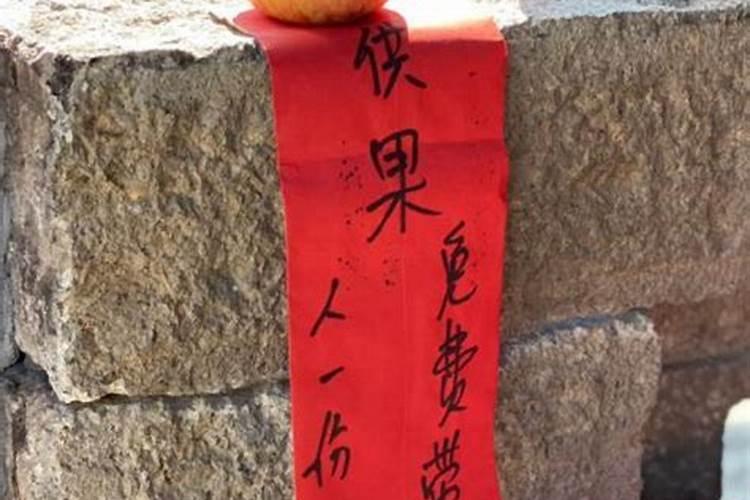 供果
免费带
人一份